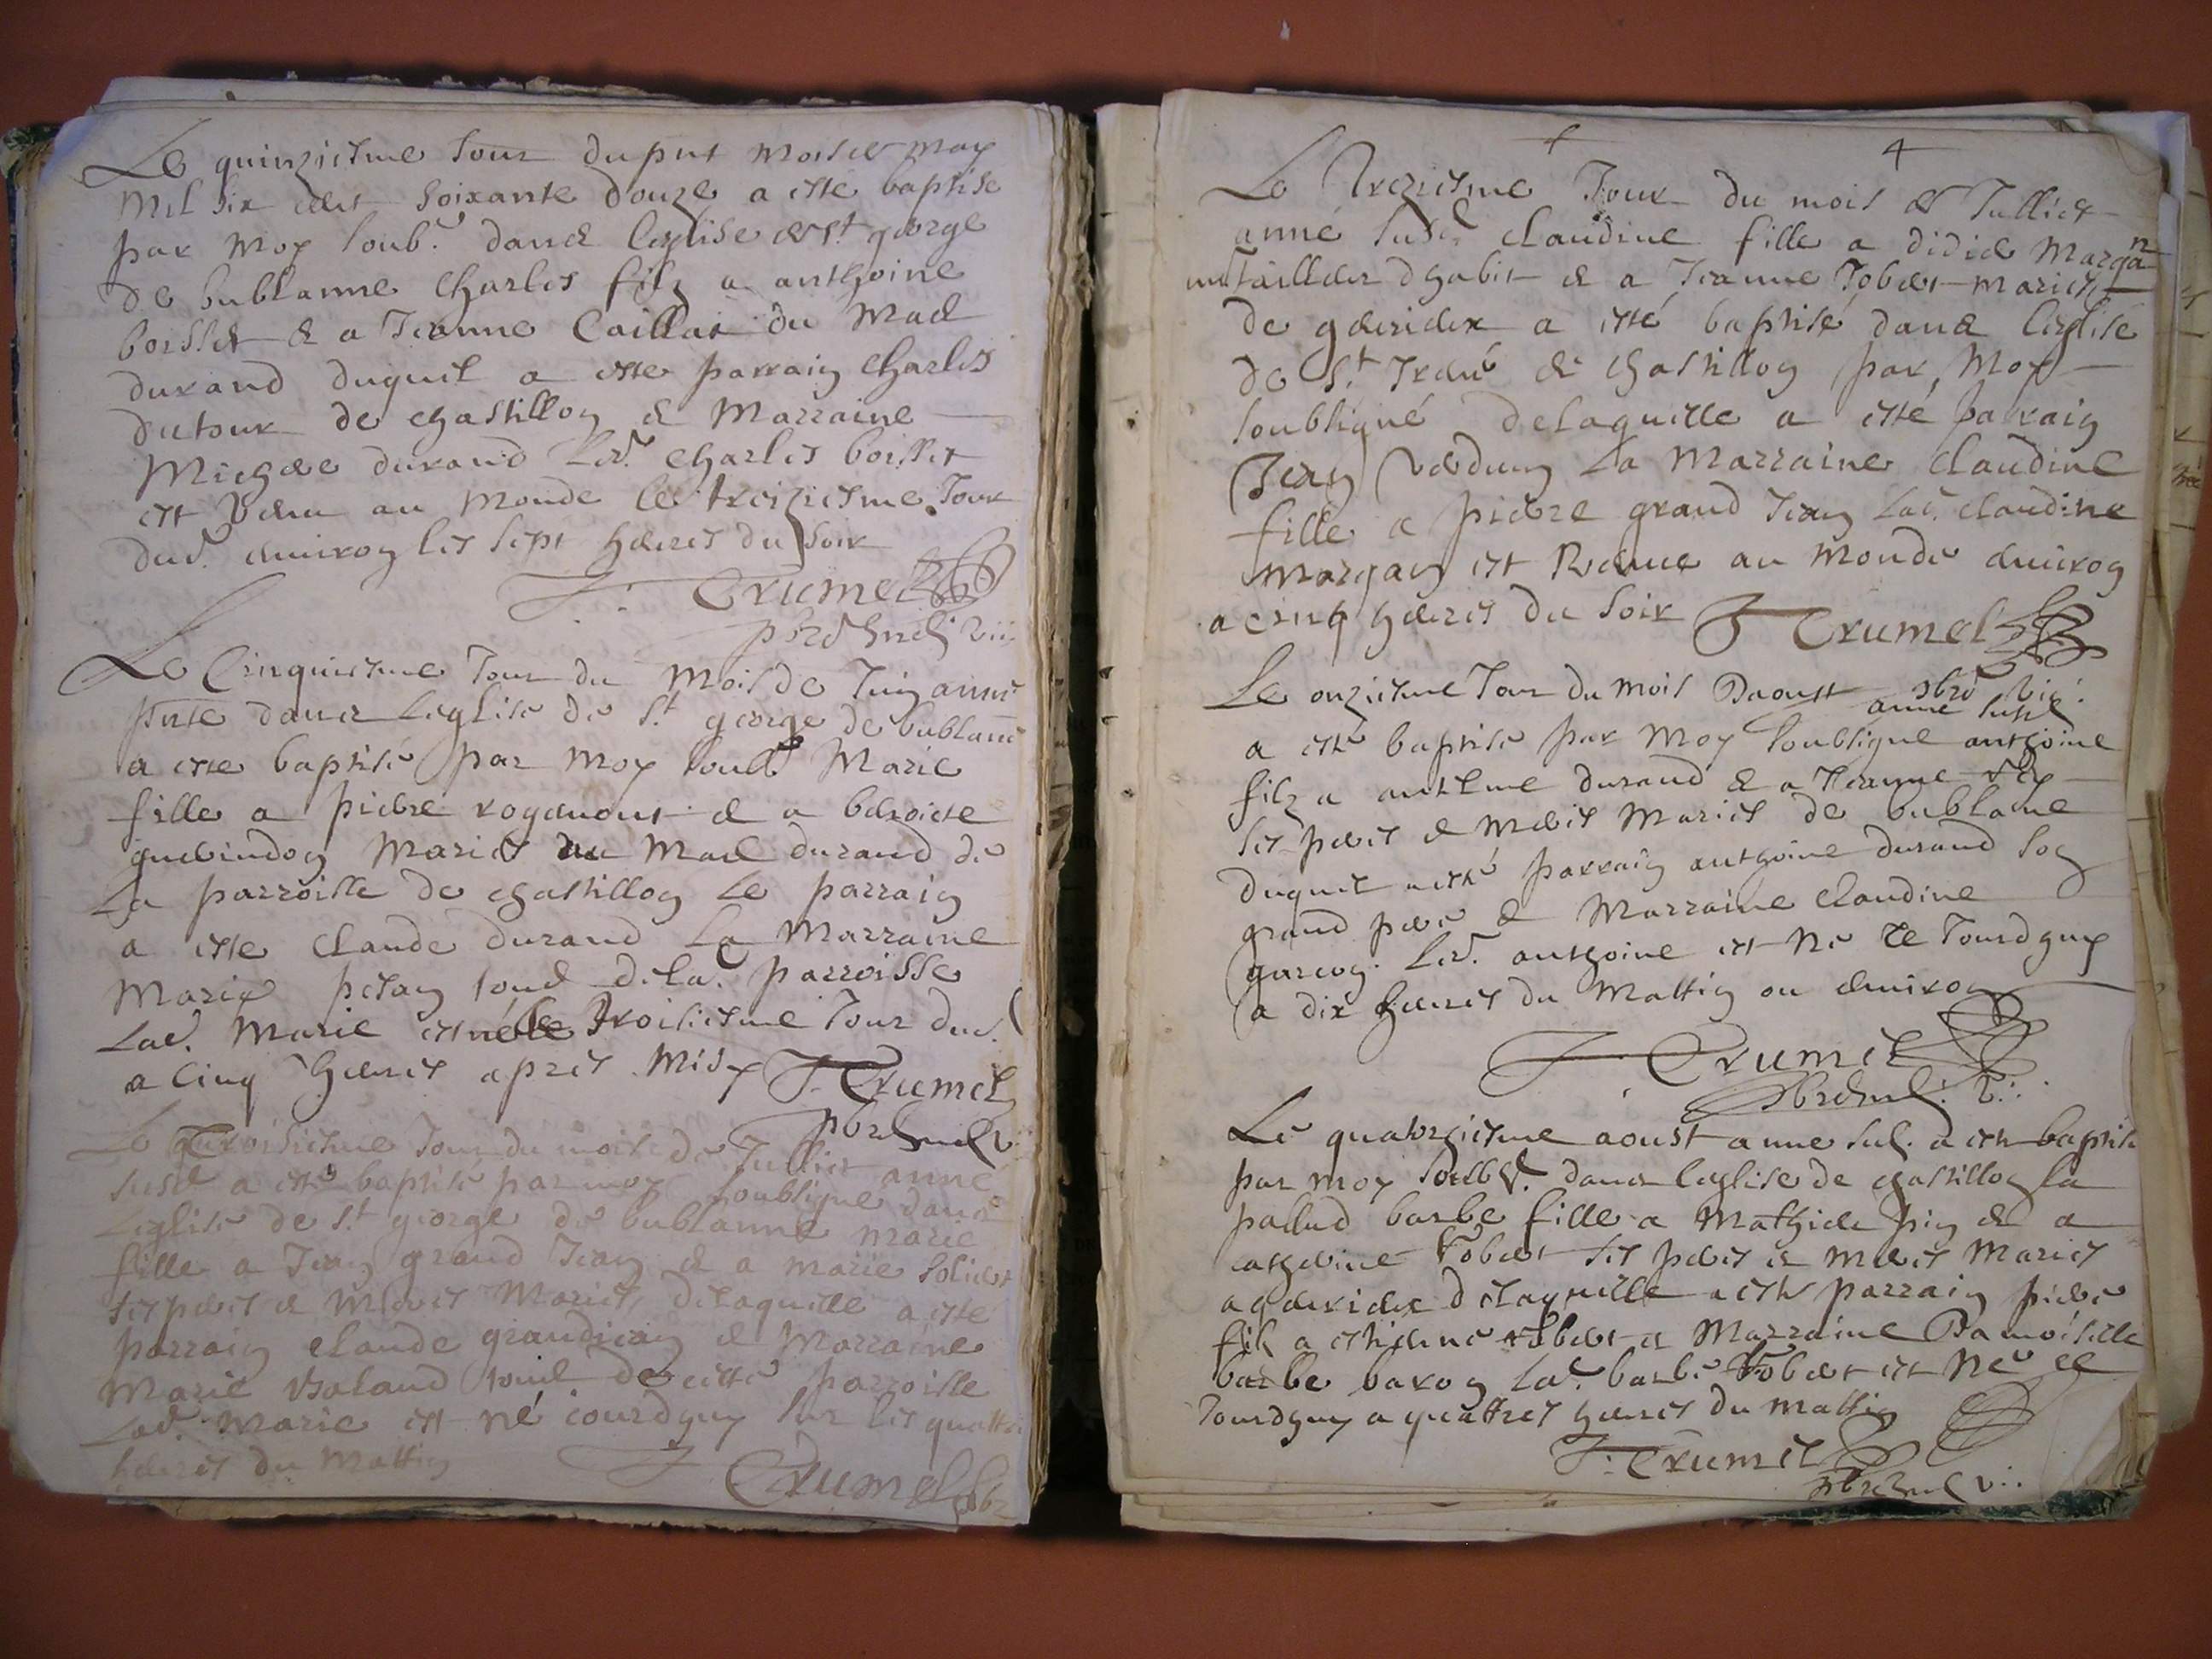 Le quinziesme Jour du pnt mois de may
mil six cent soixante douze a este baptise
par moy soub.ᵉ dans leglise de st. george
de bublanne Charles filz a anthoine
boisset & a Jeanne Caillat du Mas
durand duquel a este parrain Charles
dutour de chastillon & Marraine
Michee durand Led. Charles boisset
est venu au monde le treiziesme Jour
dud. environ les sept heures du soir
F. Crumel
pbre
Le Cinquiesme Jour du mois de Juin année
pnte dans Leglise de St george de bublane
a este baptisé par moy soubᵉ Marie
fille a pierre & a benoicte
Mariés du Mas durand de
La parroisse de chastillon Le parrain
a este Claude durand La Marraine
Marie petan tous de lad. parroisse
Lad. Marie est née le Troisiesme Jour dud.
a cinq heures apres midy F. Crumel
pbre
Le Troisiesme Jour du mois de Jullier anne
susd a este baptisé par moy soubsigne dans
Leglise de St george de bublanne marie
fille a Jean grand Jean & a marie
ses peres & meres Mariés, delaquelle a esté
parrain claude grandiean & Marraine
Marie Baland tous de cette parroisse
Lad. Marie est né jourdhuy sur les quattre
heures du Mattin
F Crumel pbr
4
Le Treziesme Jour du mois de Jullier
anné susd. claudine fille a didier Margan
un tailleur dhabit & a Jeanne Jobert mariés
de a esté baptisé dans leglise
de St. Irené de chastillon par Moy
soubsigné delaquelle a esté parrain
Jean verdun La Marraine Claudine
fille a pierre grand Jean Lad. claudine
Margan est venue au monde environ
a cinq heures du soir F Crumel
pbre vic.
Le onziesme Jour du mois Daoust anne susd
a esté baptisé par Moy soubsigné anthoine
filz a anthelme durand & a Jeanne
ses peres & meres Mariés de bublane
duquel a esté parrain anthoine durand son
grand pere & Marraine Claudine
garcon. Led. anthoine est né ce Jourdhuy
a dix heures du Mattin ou environ
F. Crumel
pbre
Le quatorziesme aoust anne sud. a este baptise
par moy soubs. dans leglise de chastillon la
pallud barbe fille a Mathieu pin & a
catherine Jobert ses peres & meres Mariés
a delaquelle a esté parrain pierre
filz a estienne Jobert & Marraine Damoiselle
barbe baron Lad. barbe Jobert est née ce
Jourdhuy a quattres heures du mattin
F. Crumel
pbre